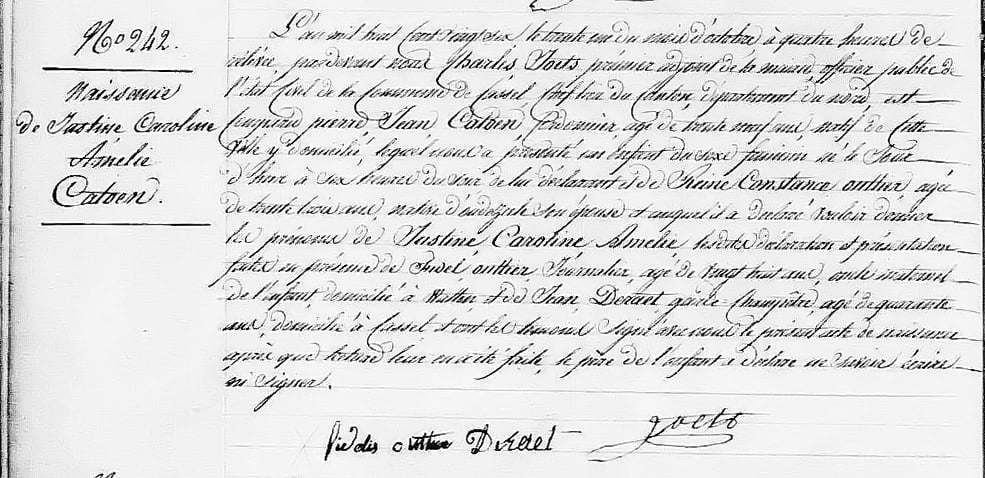 No 242.
Naissance
de Justine Caroline
Amélie
Catoen.
L'an mil huit cent vingt six le trente un du mois d'octobre à quatre heures de
rélévée, pardevant nous Charles Joets premier adjoint de la mairie, officier public de
l'état Civil de la Commune de Cassel, chef lieu du Canton, département du nord, est
comparu pierre Jean Catoen, agé de trente neuf ans, natif de Cette
ville y domicilié, lequel nous a présenté un enfant du sexe féminin né le Jour
d'hier à six heures du soir de lui déclarant et de Reine Constance outtier agée
de trente trois ans, native son épouse et auquel il a déclaré vouloir donner
les prénoms de Justine Caroline Amélie lesdites déclaration et présentation
faites en présence de outtier Journalier agé de vingt huit ans, oncle maternel
de l'enfant domicilié à Watten et de Jean Deraet, garde-Champêtre, agé de quarante
ans, domicilié à Cassel et ont les témoins signé avec nous le présent acte de naissance
après que lecture leur en a été faite, le père de l'enfant a déclaré ne savoir écrire
ni signer.
Deraet Joets